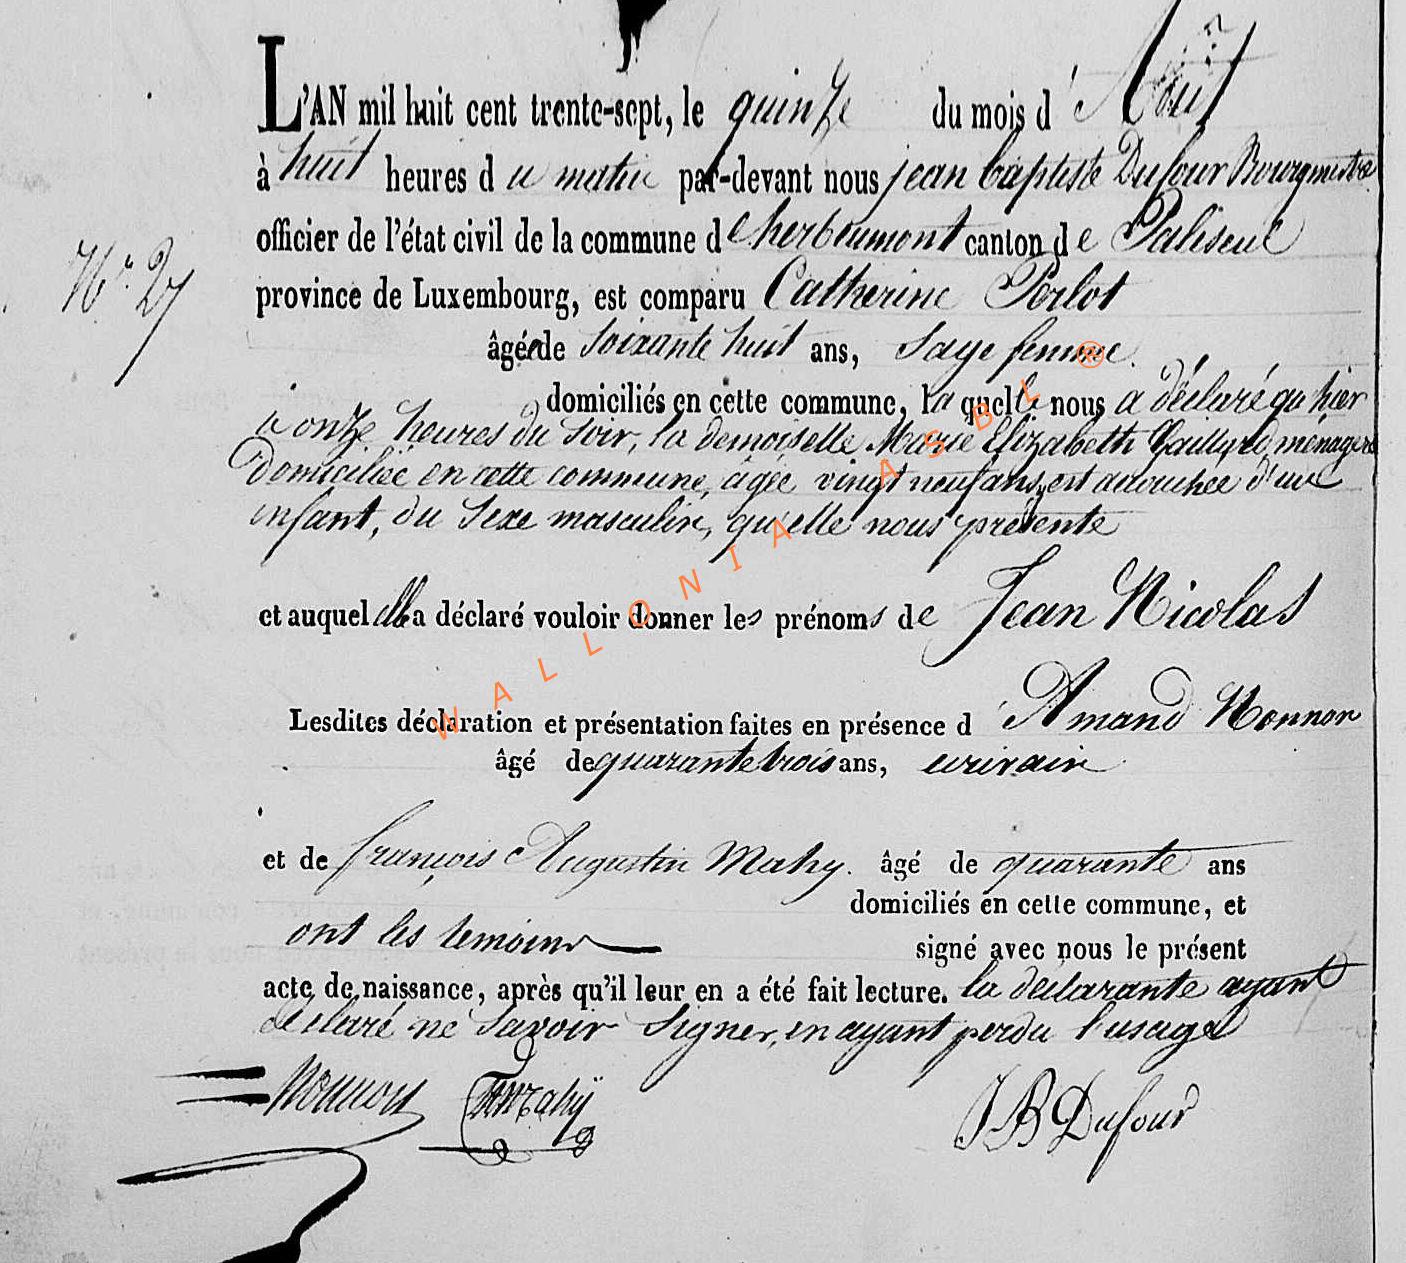 L'AN mil huit cent trente-sept, le quinze du mois d'Aout
à huit heures du matin par-devant nous jean baptiste Dufour Bourgmestre
officier de l'état civil de la commune de herbeumont canton de Paliseul
N° 27
province de Luxembourg, est comparu Catherine Perlot
âgée de soixante huit ans, sage femme
domiciliés en cette commune, la quelle nous a déclaré qu'hier
à onze heures du soir, la demoiselle Marie Elizabeth Gaillard, ménagère
domiciliée en cette commune, agée vingt neuf ans, est accouchée d'un
enfant, du sexe masculin, qu'elle nous présente
et auquel elle a déclaré vouloir donner les prénoms de Jean Nicolas
Lesdites déclaration et présentation faites en présence d'Amand Monnon
âgé de quarante trois ans, ecrivain
et de françois Augustin Mahy. âgé de quarante ans
domiciliés en cette commune, et
ont les temoins signé avec nous le présent
acte de naissance, après qu'il leur en a été fait lecture. la déclarante ayant
déclaré ne savoir signer, en ayant perdu l'usage
Monnon Mahy JB Dufour
WALLONIA ASBL ®